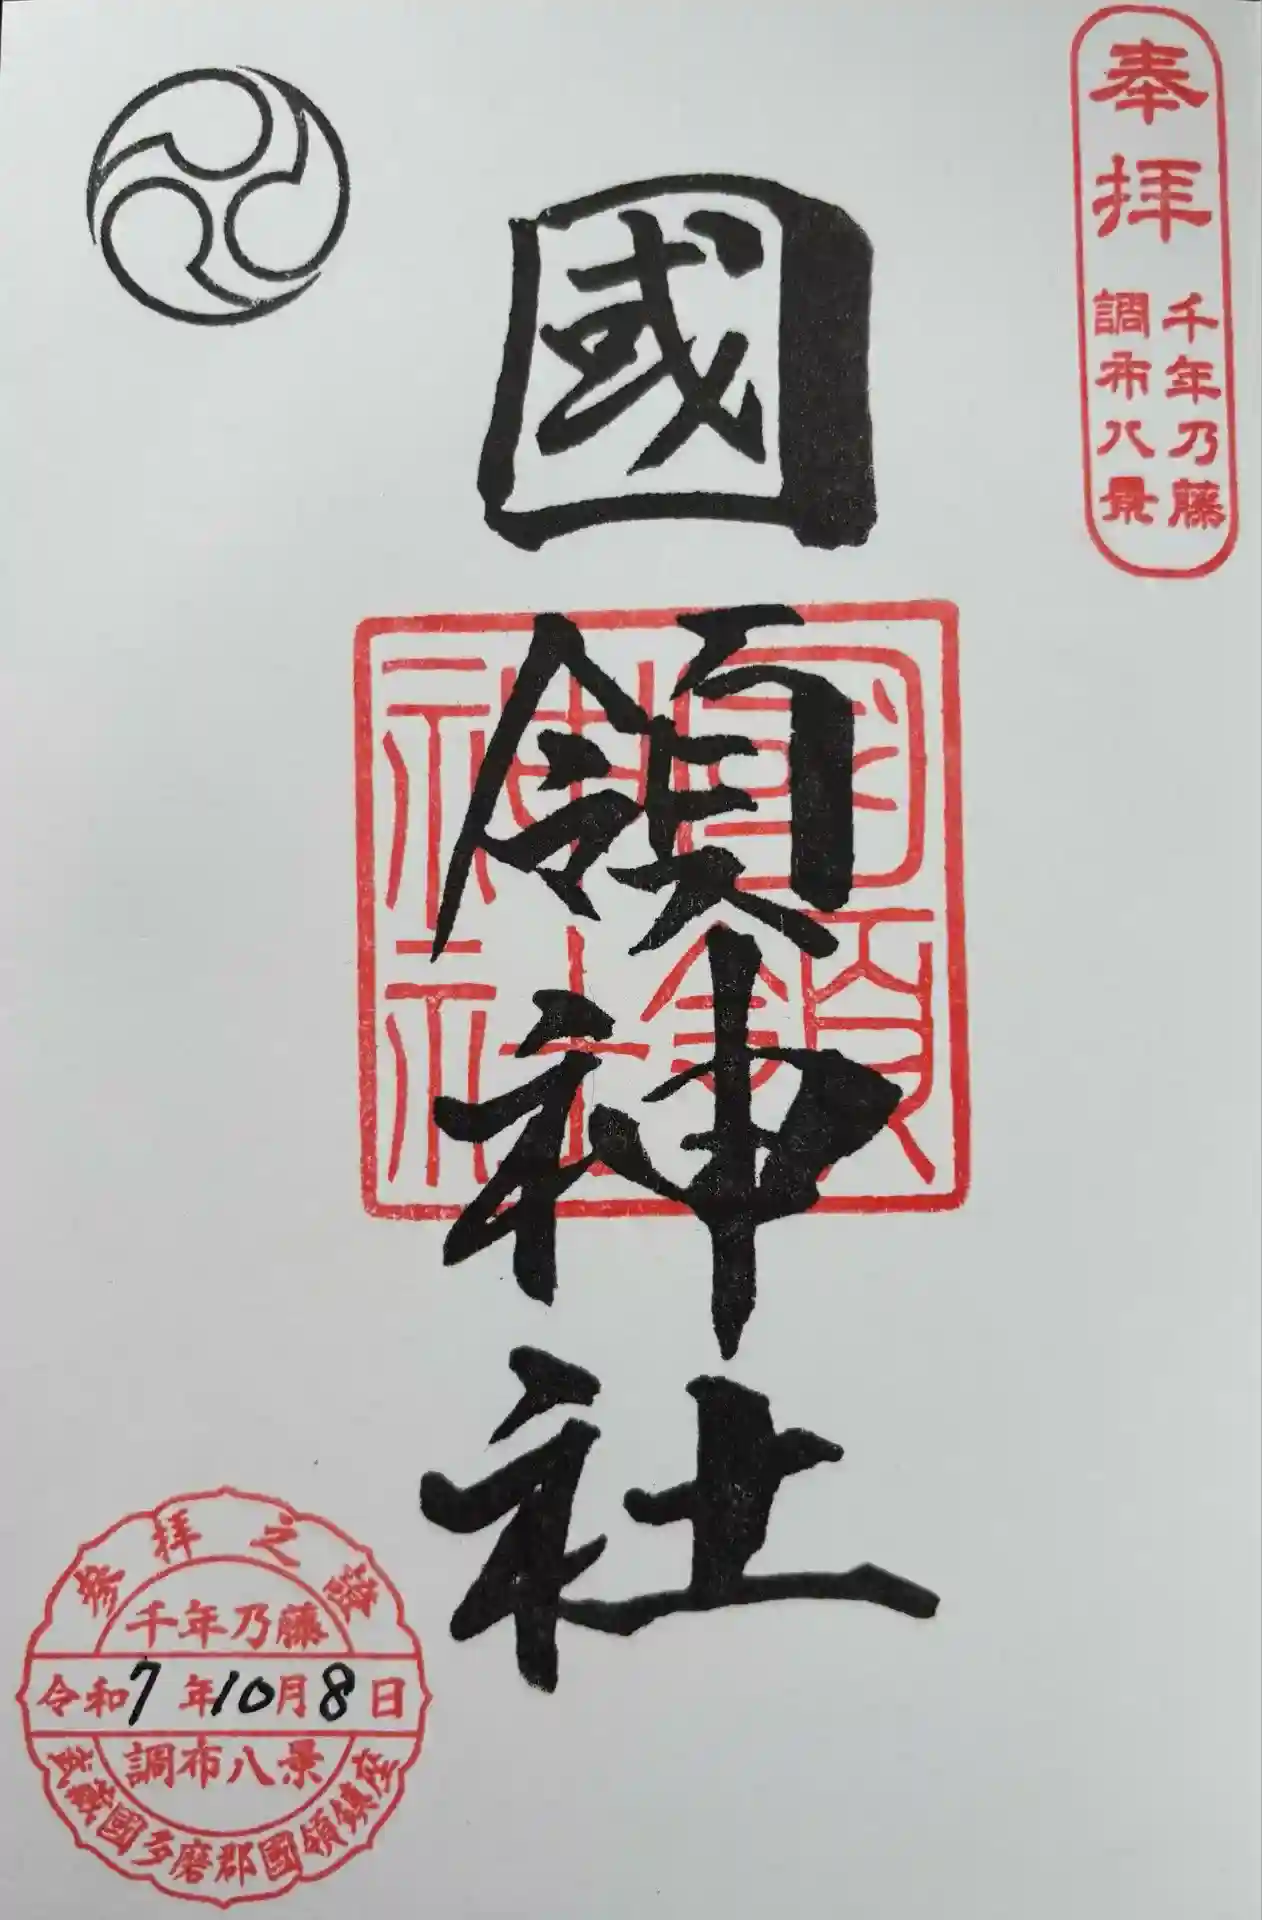 奉拝
千年乃藤
調布八景
國領神社
國領
神社
参拝之證
千年乃藤
令和7年10月8日
調布八景
武蔵國多磨郡國領鎮座